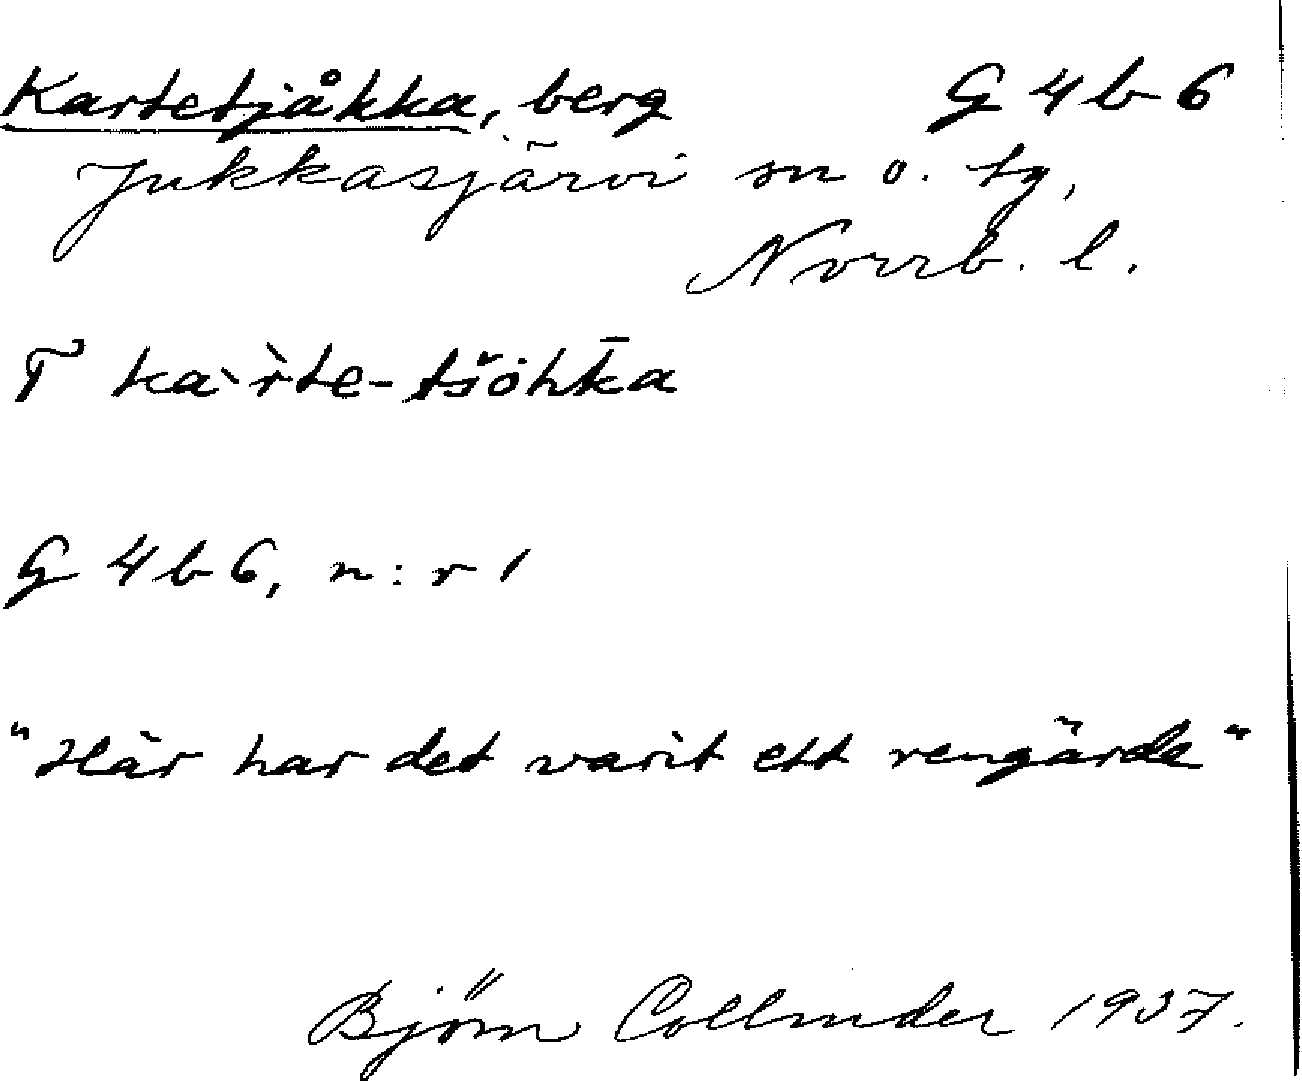 Kartetjåkka, berg G 4 b 6
Jukkasjärvi sn o. tg,
Norrb. l.
T ka`r̀te-tšȯhk̄a
G 4 b 6, n:r 1
"Här har det varit ett rengärde"
Björn Collinder 1937.